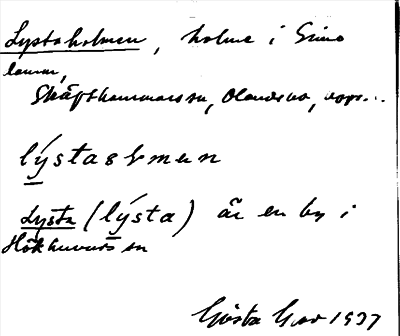 Lystaholmen, holme i Gimo
damm,
Skäfthammars sn, Olands hd, Uppl.
lýstaơlmen
Lysta (lýsta) är en by i
Hökhuvuds sn
Gösta 1937